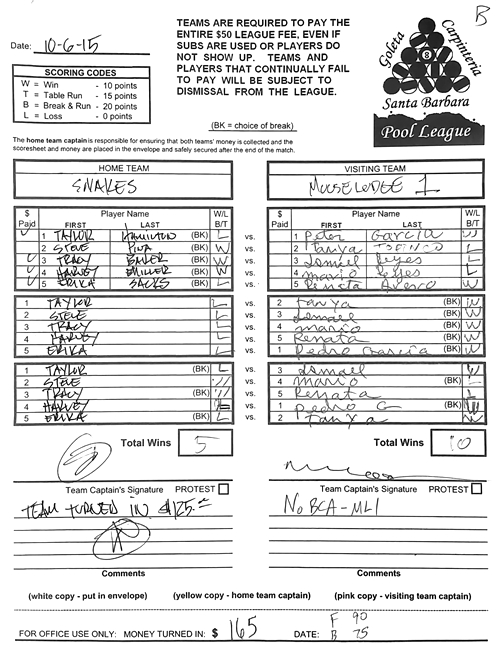 B
Date: 10-6-15
TEAMS ARE REQUIRED TO PAY THE
ENTIRE $50 LEAGUE FEE, EVEN IF
SUBS ARE USED OR PLAYERS DO
NOT SHOW UP. TEAMS AND
PLAYERS THAT CONTINUALLY FAIL
TO PAY WILL BE SUBJECT TO
DISMISSAL FROM THE LEAGUE.
Goleta Carpinteria
8
Santa Barbara
Pool League
SCORING CODES
W = Win - 10 points
T = Table Run - 15 points
B = Break & Run - 20 points
L = Loss - 0 points
(BK = choice of break)
The home team captain is responsible for ensuring that both teams' money is collected and the
scoresheet and money are placed in the envelope and safely secured after the end of the match.
HOME TEAM VISITING TEAM
SNAKES
$ Player Name W/L $ Player Name W/L
Paid FIRST LAST B/T Paid FIRST LAST B/T
1 TAYLOR HAMILTON (BK) L vs. 1 Peter Garcia W
2 STEVE W vs. 2 Tanya L
3 TRACY W vs. 3 Ismael Reyes L
4 HARVEY MILLER (BK) W vs. 4 mario Reyes L
5 ERIKA SACKS (BK) L vs. 5 Renata W
1 TAYLOR L vs. 2 Tanya (BK) W
2 STEVE L vs. 3 Ismael (BK) W
3 TRACY L vs. 4 mario (BK) W
4 HARVEY L vs. 5 Renata (BK) W
5 ERIKA L vs. 1 Pedro Garcia (BK) W
1 TAYLOR (BK) L vs. 3 Ismael W
2 STEVE W vs. 4 mario (BK) L
3 TRACY (BK) W vs. 5 Renata L
4 HARVEY L vs. 1 Pedro G (BK) W
5 ERIKA (BK) L vs. 2 Tanya W
Total Wins 5 Total Wins 10
Team Captain's Signature PROTEST Team Captain's Signature PROTEST
TEAM TURNED IN $125.00 No BCA-ML1
Comments Comments
(white copy - put in envelope) (yellow copy - home team captain) (pink copy - visiting team captain)
FOR OFFICE USE ONLY: MONEY TURNED IN: $ 165 DATE: F 90
B 75